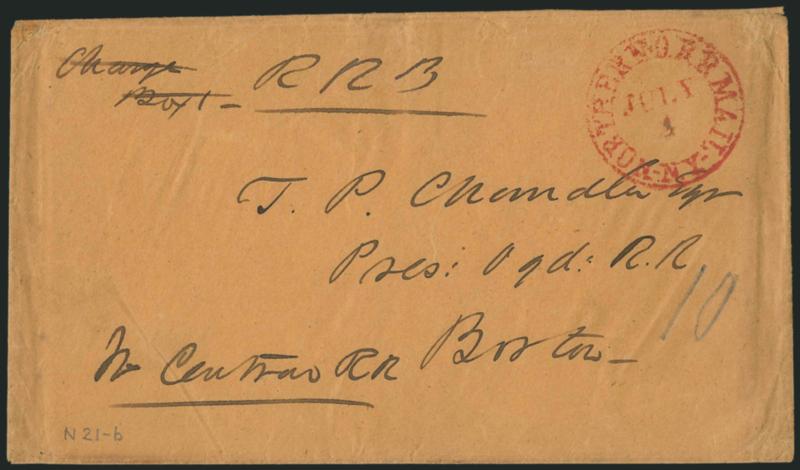 Charge
Box 1 -
R R B
NORTHERN R.R. MAIL. N.Y.
JULY
1
T. P. Chandler Esqr
Pres: Ogd: R.R
10
Vt Central RR Boston -
N 21-b